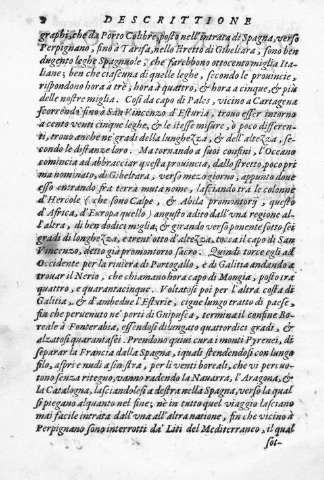 2 DESCRITTIONE
graphi, che da Porto Colibre, posto nell'intrata di Spagna, verso
Perpignano, fino à Tarifa, nello stretto di Gibeltara, sono ben
dugento leghe Spagnuole, che farebbono ottocento miglia Ita
liane; ben che ciascuna di quelle leghe, secondo le prouincie,
rispondono hora à tre, hora à quattro, & hora a cinque, & più
delle nostre miglia. Cosi da capo di Palos, vicino a Cartagena
scorrendo fino à San Vincenzo d'Esturia, trouo esser intorno
a cento venti cinque leghe, & le istesse misure, ò poco differen
ti, trouo anche ne' gradi della lunghezza, & dell'altezza, se-
condo le distanze loro. Ma tornando a suoi confini, l'Oceano
comincia ad abbracciar questa prouincia, dallo stretto, poco pri
ma nominato, di Gibeltara, verso mezo giorno, appunto doue
esso entrando fra terra muta nome, lasciando tra le colonne
d'Hercole (che sono Calpe, & Abila promontorij, questo
d'Africa, d'Europa quello) angusto adito dall'vna regione al-
l'altra, di ben dodici miglia; & girando verso ponente sotto sei
gradi di longhezza, e trent'otto d'altezza, tocca il capo di San
Vincenzo, detto già promontorio sacro. Quindi torce egli ad
Occidente per la riuiera di Portogallo, & di Galitia andando a
trouar il Nerio, che chiamano hora capo di Mongia, posto tra
quattro, e quarantacinque. Voltatosi poi per l'altra costa di
Galitia, & d'ambedue l'Esturie, cigne lungo tratto di paese,
fin che peruenuto ne' porti di Guipusca, termina il confine Bo-
reale à Fonterabia, essendosi dilungato quattordici gradi, &
alzatosi quarantasei. Prendono quiui cura i monti Pyrenei, di
separar la Francia dalla Spagna, i quali stendendosi con lungo
filo, aspri e nudi a sinistra, per li venti boreali, che vi percuo-
tono senza ritegno, vanno radendo la Nauarra, l'Aragona, &
la Catalogna, lasciandolesi a destra nella Spagna, verso la qual
si piegano alquanto nel fine; nè in tutto quel viaggio lasciano
mai facile intrata dall'vna all'altra natione, fin che vicino à
Perpignano sono interrotti da' Liti del Mediterraneo, il qual
sol-